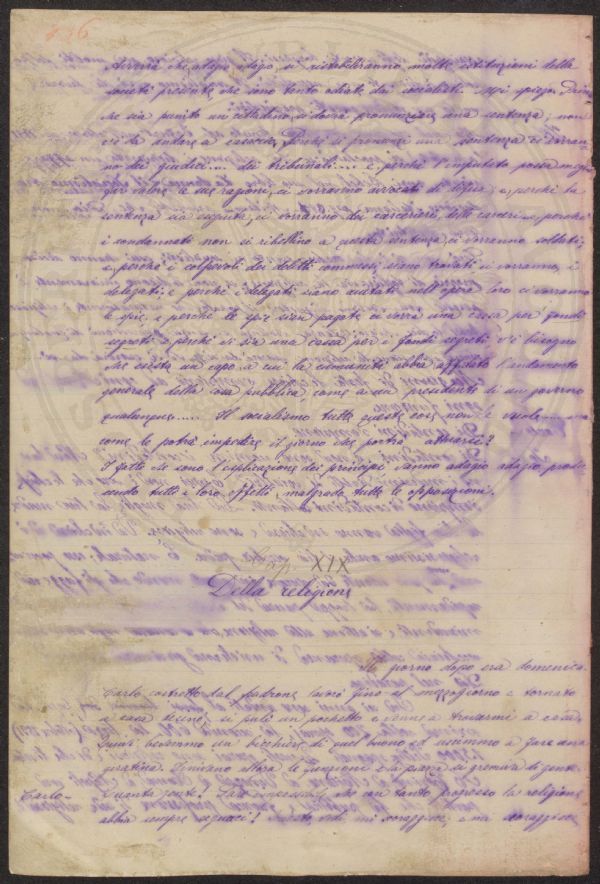 136
Avverrà che adagio adagio, si ristabiliranno molte istituzioni della
società presente che sono tanto odiate dai socialisti. Mi spiego. Prima
che sia punito un cittadino, si dovrà pronunciare una sentenza; non
si dà andare a casaccio. Perché si pronunzi una sentenza ci vorran-
no dei giudici.... dei tribunali.... e perché l'imputato possa
far valere le sue ragioni, ci vorranno avvocati di difesa e, perchè la
sentenza sia eseguita, ci vorranno dei carcerieri, delle carceri e, perchè
i condannati non si ribellino a questa sentenza, ci vorranno soldati;
e, perchè i colpevoli dei delitti commessi, siano trovati ci vorranno, i
delegati; e perchè i delegati siano aiutati nell'opera loro ci vorranno
le spie, e perchè le spie sian pagate ci vorrà una cassa per fondi
segreti e perchè ci sia una cassa per i fondi segreti v'è bisogno
che esista un capo a cui la comunità abbia affidato l'andamento
generale della cosa pubblica come a un presidente di un governo
qualunque..... Il socialismo tutte queste cose non le vuole
come le potrà impedire il giorno che potrà attuarsi?
I fatti che sono l'esplicazione dei principi vanno adagio adagio produ-
cendo tutti i loro effetti, malgrado tutte le opposizioni.
Cap. XIX
Della religione
Il giorno dopo era domenica.
Carlo costretto dal padrone lavorò fino al mezzogiorno e tornato
a casa desinò, si pulì un pochetto e venne a trovarmi a casa.
Quivi bevemmo un bicchiere di quel buono ed uscimmo a fare una
giratina. Finivano allora le funzioni e la piazza si gremiva di gente.
Carlo - Quanta gente! Pare impossibile che con tanto progresso la religione
abbia sempre seguaci! mi scoraggisce, e mi scoraggisce